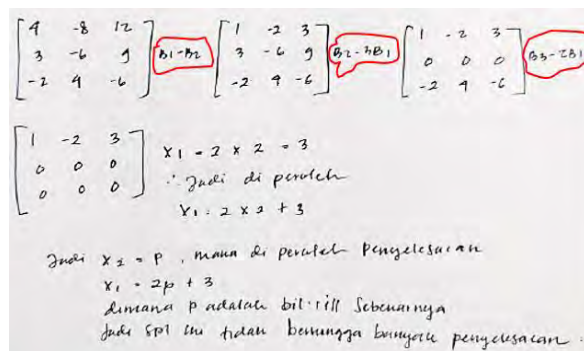 4 -8 12 1 -2 3 1 -2 3
3 -6 9 B1-B2 3 -6 9 B2-3B1 0 0 0 B3-2B1
-2 4 -6 -2 4 -6 -2 4 -6
1 -2 3
0 0 0
0 0 0
x1 - 2 x 2 = 3
∴ Jadi di peroleh
x1 = 2 x 2 + 3
Jadi x2 = p, maka di peroleh penyelesaian
x1 = 2p + 3
dimana p adalah bil. riil sebenarnya
Jadi spl ini tidak berhingga banyak penyelesaian.